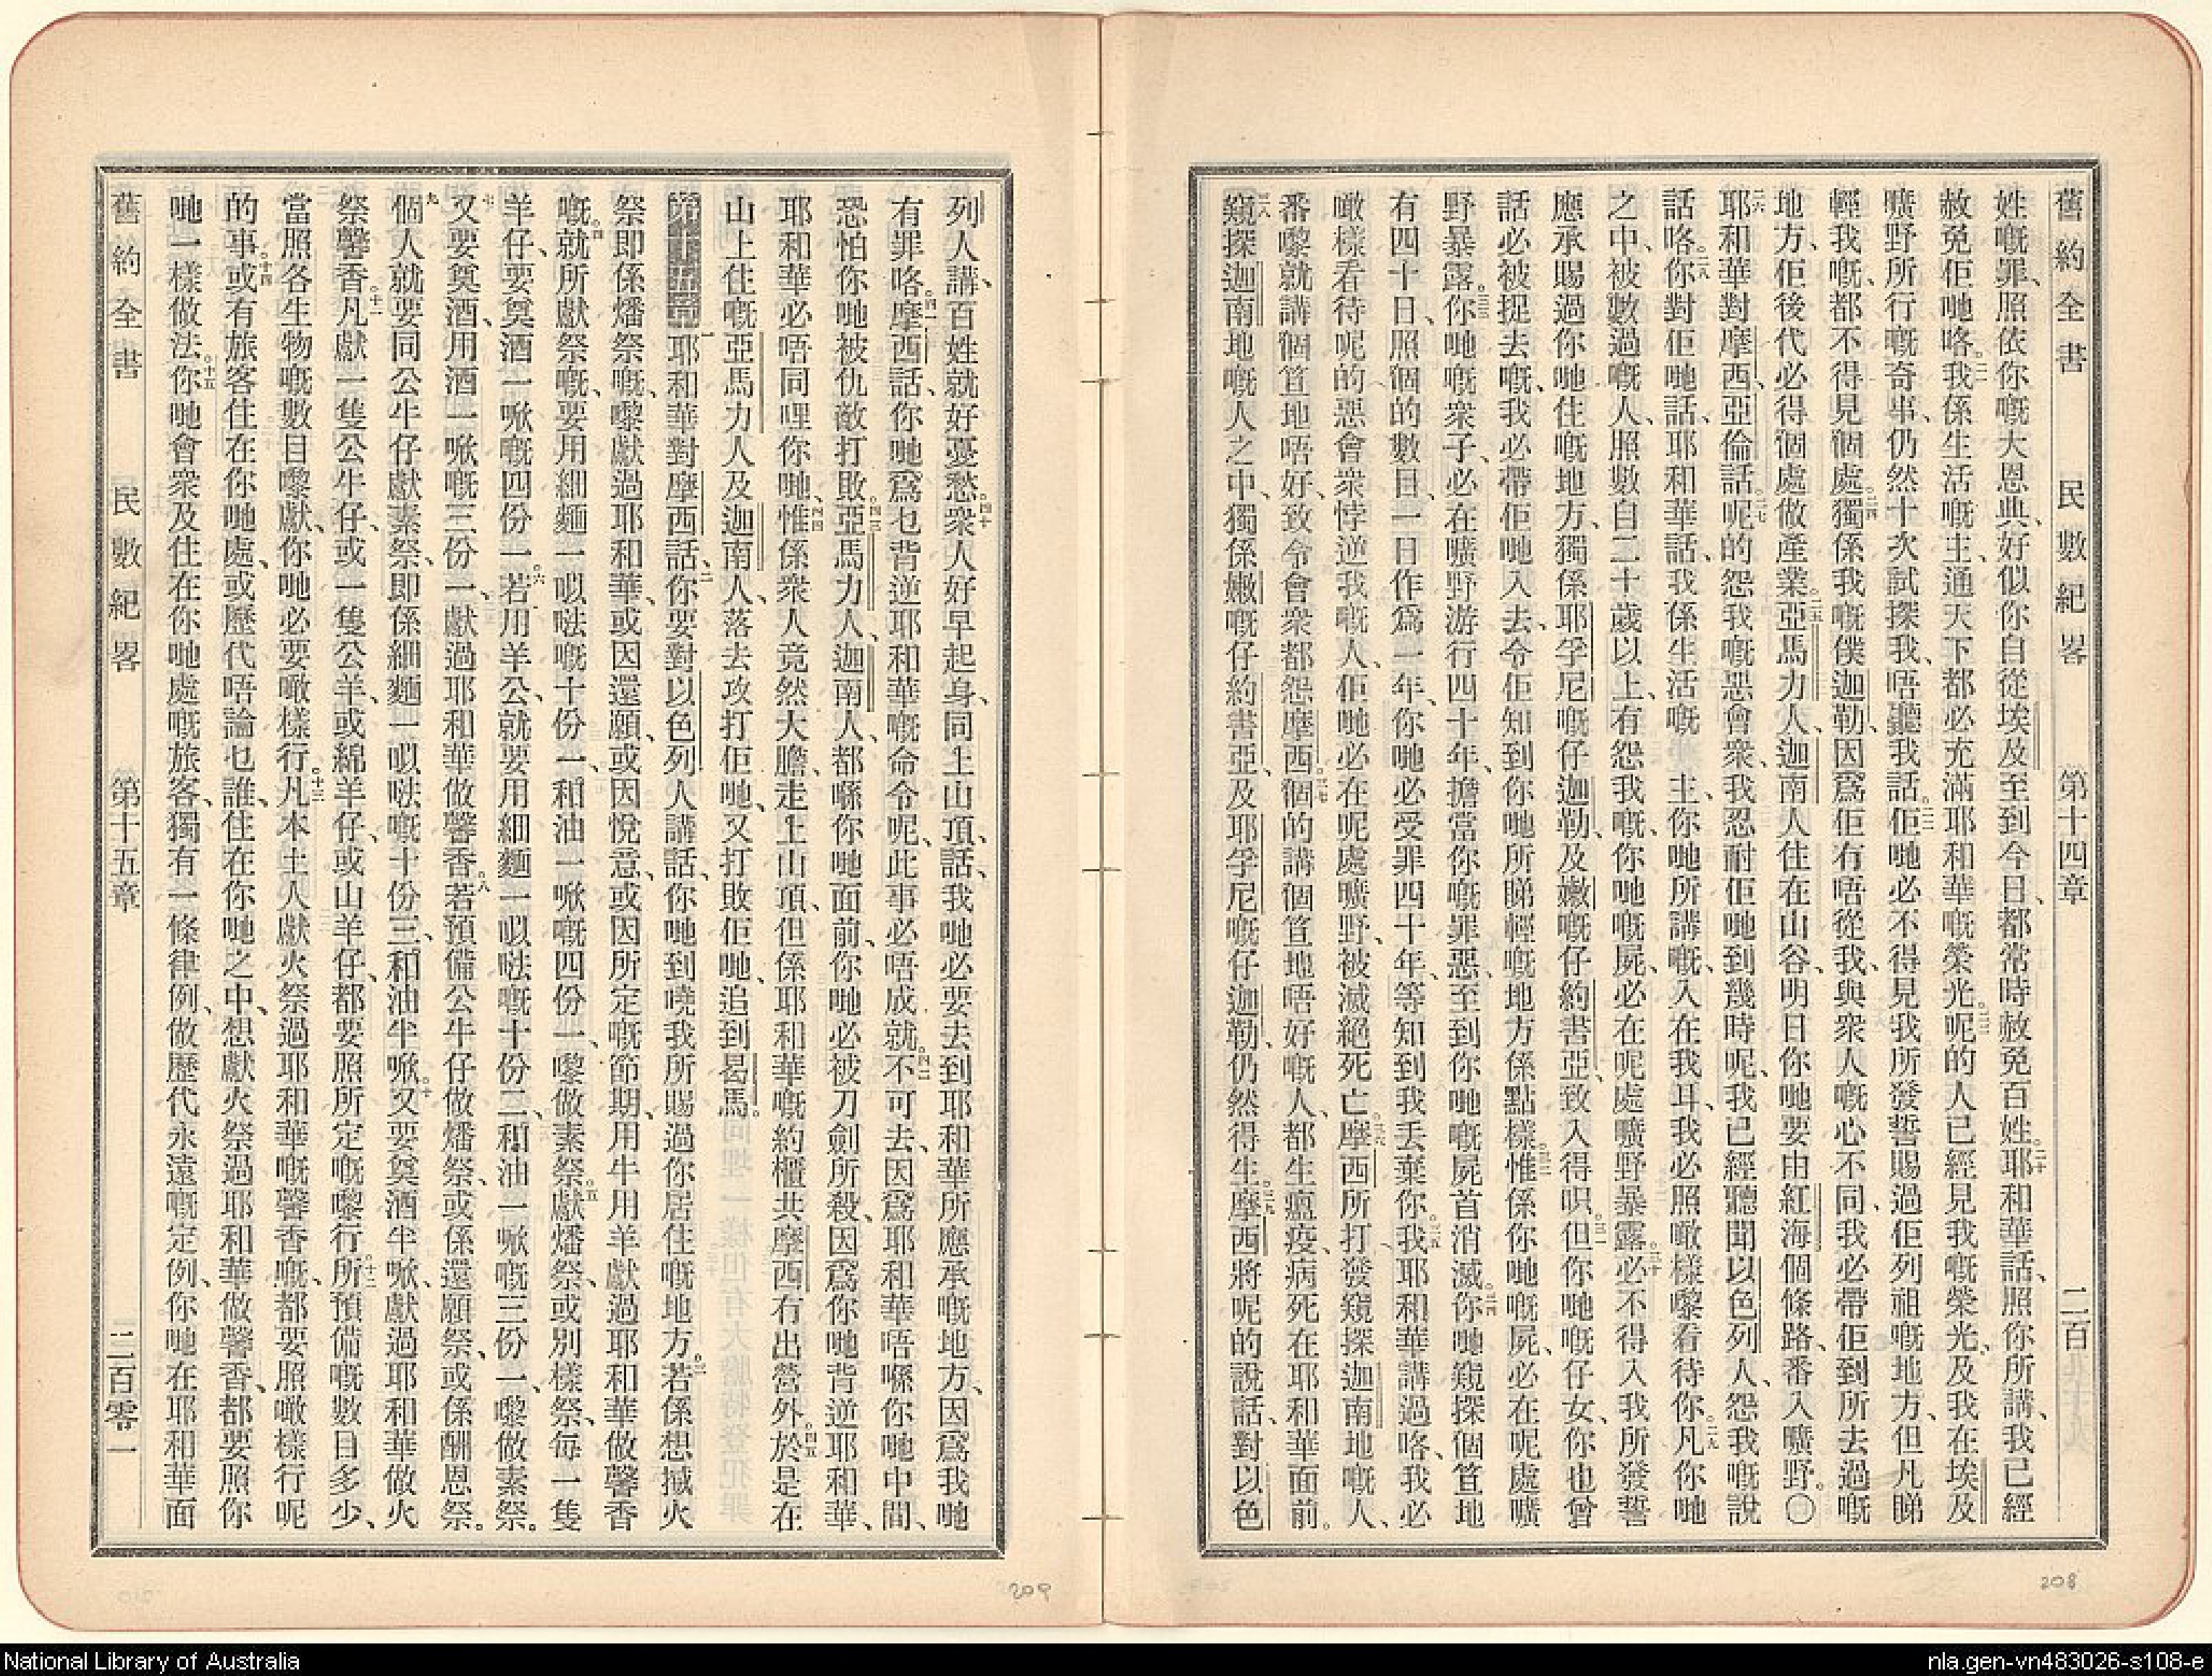 舊約全書 民數紀畧 第十四章 二百
姓嘅罪、照依你嘅大恩典、好似你自從埃及至到今日、都常時赦免百姓。二十耶和華話、照你所講、我已經
赦免佢哋咯。二一我係生活嘅主、通天下都必充滿耶和華嘅榮光。二二呢的人已經見我嘅榮光、及我在埃及
曠野所行嘅奇事、仍然十次試探我、唔聽我話。二三佢哋必不得見我所發誓賜過佢列祖嘅地方、但凡睇
輕我嘅、都不得見個處。二四獨係我嘅僕迦勒、因爲佢冇唔從我、與衆人嘅心不同、我必帶佢到所去過嘅
地方、佢後代必得個處做產業。二五亞馬力人迦南人住在山谷、明日你哋要由紅海個條路、番入曠野。〇
二六耶和華對摩西亞倫話、二七呢的怨我嘅惡會衆、我忍耐佢哋到幾時呢、我已經聽聞以色列人、怨我嘅說
話咯。二八你對佢哋話、耶和華話、我係生活嘅 主、你哋所講嘅、入在我耳、我必照噉樣嚟看待你。二九凡你哋
之中、被數過嘅人、照數自二十歲以上、有怨我嘅、你哋嘅屍、必在呢處曠野暴露。三十必不得入我所發誓
應承賜過你哋住嘅地方、獨係耶孚尼嘅仔迦勒、及嫩嘅仔約書亞、致入得唄。三一但你哋嘅仔女、你也曾
話必被捉去嘅、我必帶佢哋入去、令佢知到你哋所睇輕嘅地方係點樣。三二惟係你哋嘅屍、必在呢處曠
野暴露。三三你哋嘅衆子、必在曠野游行四十年、擔當你嘅罪惡、至到你哋嘅屍首消滅。三四你哋窺探個笪地
有四十日、照個的數目、一日作爲一年、你哋必受罪四十年、等知到我丟棄你。三五我耶和華講過咯、我必
噉樣看待呢的惡會衆悖逆我嘅人、佢哋必在呢處曠野、被滅絕死亡。三六摩西所打發窺探迦南地嘅人、
番嚟就講個笪地唔好、致令會衆都怨摩西。三七個的講個笪地唔好嘅人、都生瘟疫、病死在耶和華面前。
三八窺探迦南地嘅人之中、獨係嫩嘅仔約書亞、及耶孚尼嘅仔迦勒、仍然得生。三九摩西將呢的說話、對以色
列人講、百姓就好憂愁。四十衆人好早起身、同上山頂、話、我哋必要去到耶和華所應承嘅地方、因爲我哋
有罪咯。四一摩西話、你哋爲乜背逆耶和華嘅命令呢、此事必唔成就。四二不可去、因爲耶和華唔喺你哋中間、
恐怕你哋被仇敵打敗。四三亞馬力人、迦南人、都喺你哋面前、你哋必被刀劍所殺、因爲你哋背逆耶和華、
耶和華必唔同埋你哋。四四惟係衆人竟然大膽、走上山頂、但係耶和華嘅約櫃共摩西冇出營外。四五於是在
山上住嘅亞馬力人及迦南人、落去攻打佢哋、又打敗佢哋、追到曷馬。
第十五章 一耶和華對摩西話、二你要對以色列人講話、你哋到曉我所賜過你居住嘅地方。三若係想搣火
祭、即係燔祭嘅、嚟獻過耶和華、或因還願、或因悅意、或因所定嘅節期、用牛用羊獻過耶和華做馨香
嘅。四就所獻祭嘅、要用細麵一㕽㗎嘅十份一、和油一㗀嘅四份一、嚟做素祭。五獻燔祭、或別樣祭、每一隻
羊仔、要奠酒一㗀嘅四份一。六若用羊公、就要用細麵一㕽㗎嘅十份二、和油一㗀嘅三份一、嚟做素祭。
七又要奠酒、用酒一㗀嘅三份一、獻過耶和華做馨香。八若預備公牛仔做燔祭、或係還願祭、或係酬恩祭。
九個人就要同公牛仔獻素祭、即係細麵一㕽㗎嘅十份三、和油半㗀。十又要奠酒半㗀、獻過耶和華做火
祭馨香。十一凡獻一隻公牛仔、或一隻公羊、或綿羊仔、或山羊仔、都要照所定嘅嚟行。十二所預備嘅數目多少、
當照各生物嘅數目嚟獻、你哋必要噉樣行。十三凡本土人獻火祭過耶和華嘅馨香嘅、都要照噉樣行呢
的事。十四或有旅客住在你哋處、或歷代唔論乜誰、住在你哋之中、想獻火祭過耶和華做馨香、都要照你
哋一樣做法。十五你哋會衆及住在你哋處嘅旅客、獨有一條律例、做歷代永遠嘅定例、你哋在耶和華面
舊約全書 民數紀畧 第十五章 二百零一
208
209
National Library of Australia
nla.gen-vn483026-s108-e